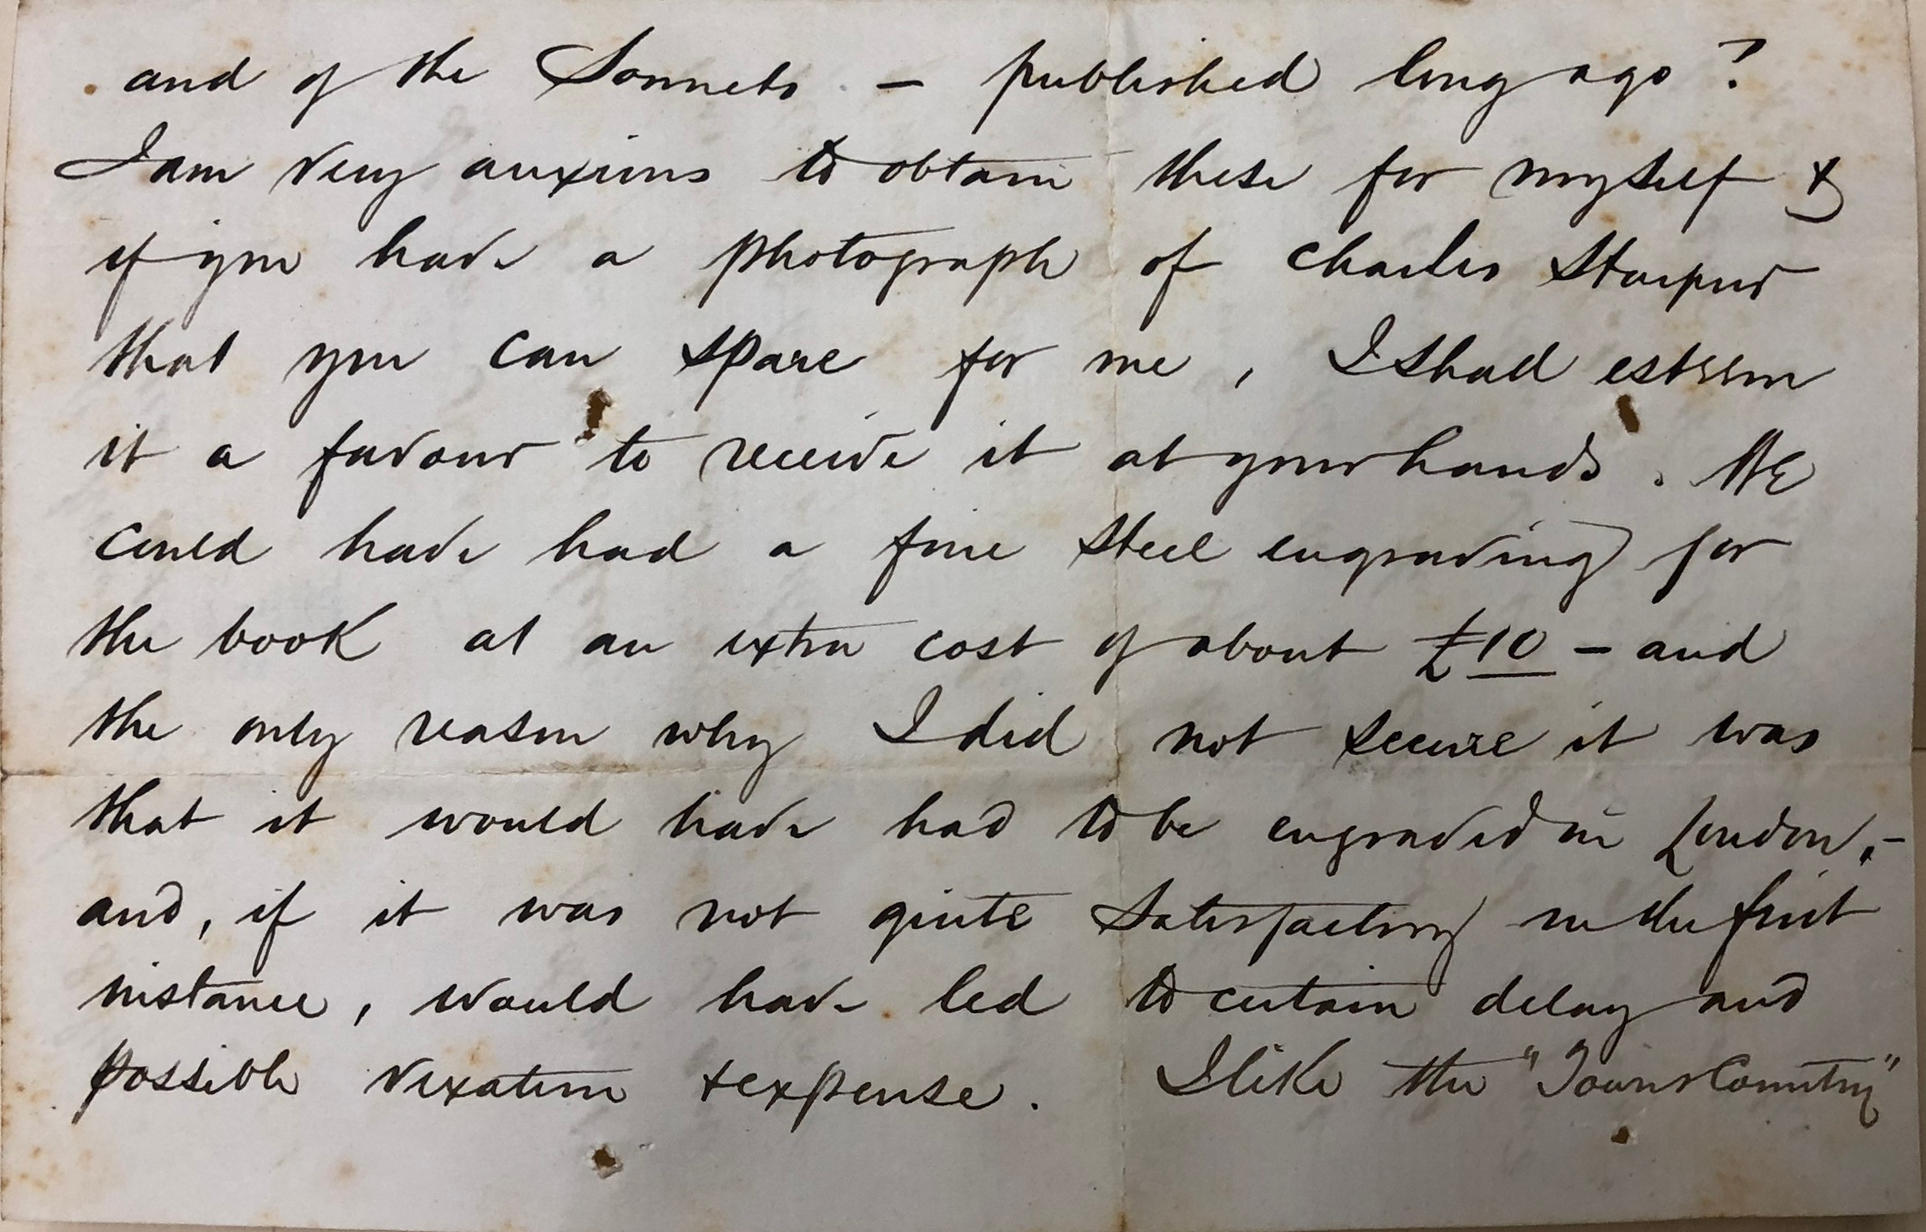 and of the Sonnets - published long ago?
I am very anxious to obtain these for myself &
if you have a photograph of Charles Harpur
that you can spare for me, I shall esteem
it a favour to receive it at your hands. We
could have had a fine steel engraving for
the book at an extra cost of about £10 - and
the only reason why I did not secure it was
that it would have had to be engraved in London, -
and, if it was not quite satisfactory in the first
instance, would have led to certain delay and
possible vexation & expense. I like the "Town & Country"